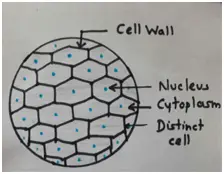 Cell Wall
Nucleus
Cytoplasm
Distinct
cell